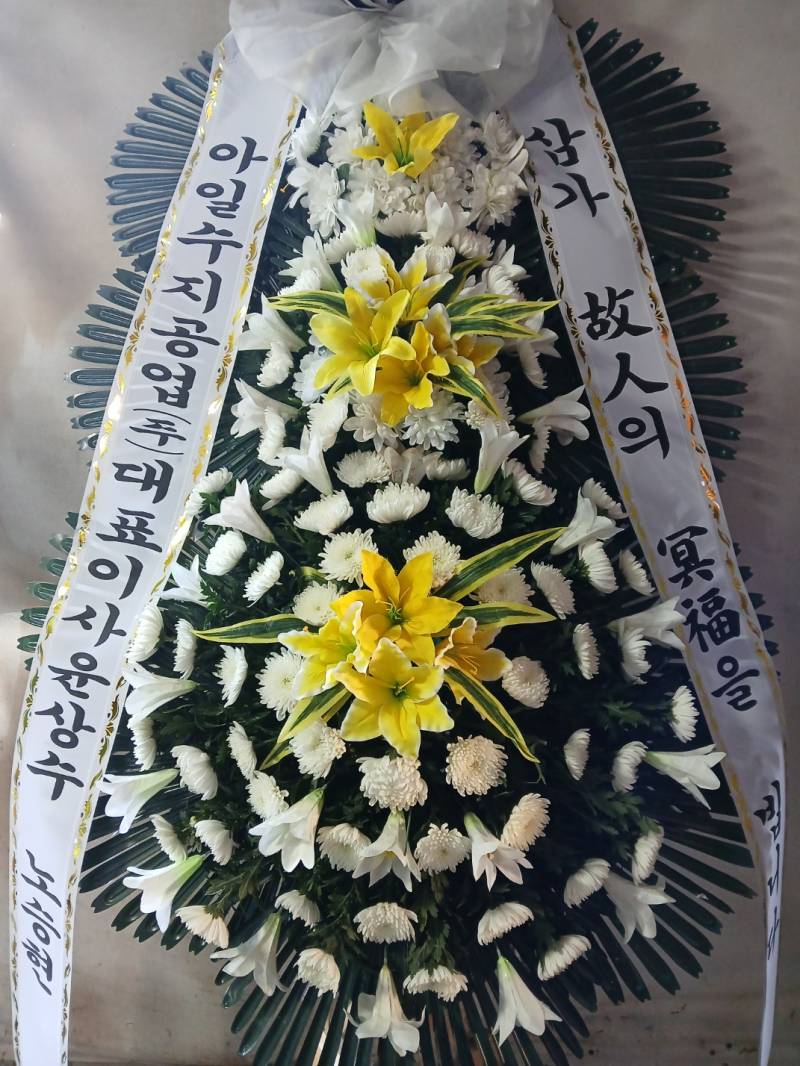 아일수지공업(주)대표이사윤상수
삼가 故人의 冥福을 빕니다